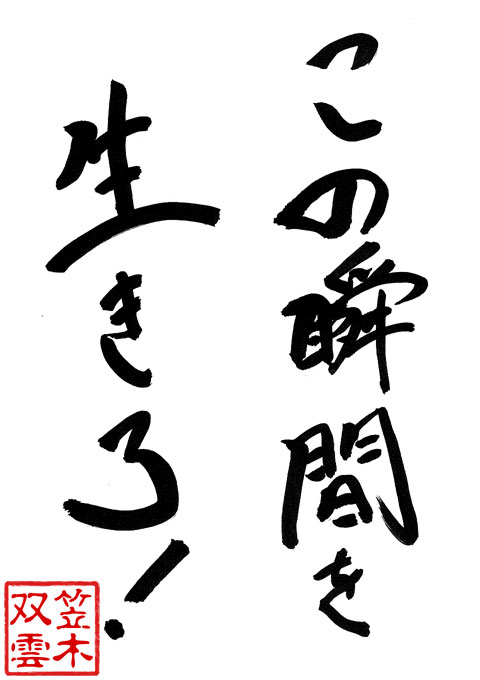 この瞬間を
生きろ!
笠木
双雲